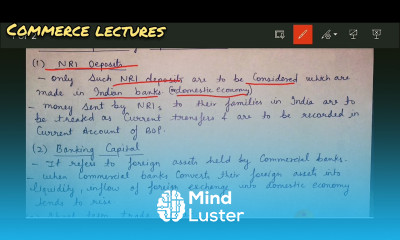 COMMERCE LECTURES
(1) NRI Deposits
- Only Such NRI deposits are to be Considered which are
made in Indian banks (domestic economy)
- money sent by NRIs to their families in India are to
be treated as Current transfers & are to be recorded in
Current Account of BOP.
(2) Banking Capital
- It refers to foreign assets held by Commercial banks.
- when Commercial banks Converts their foreign assets into
liquidity, inflow of foreign exchange into domestic economy
tends to rise.
Mind
Luster